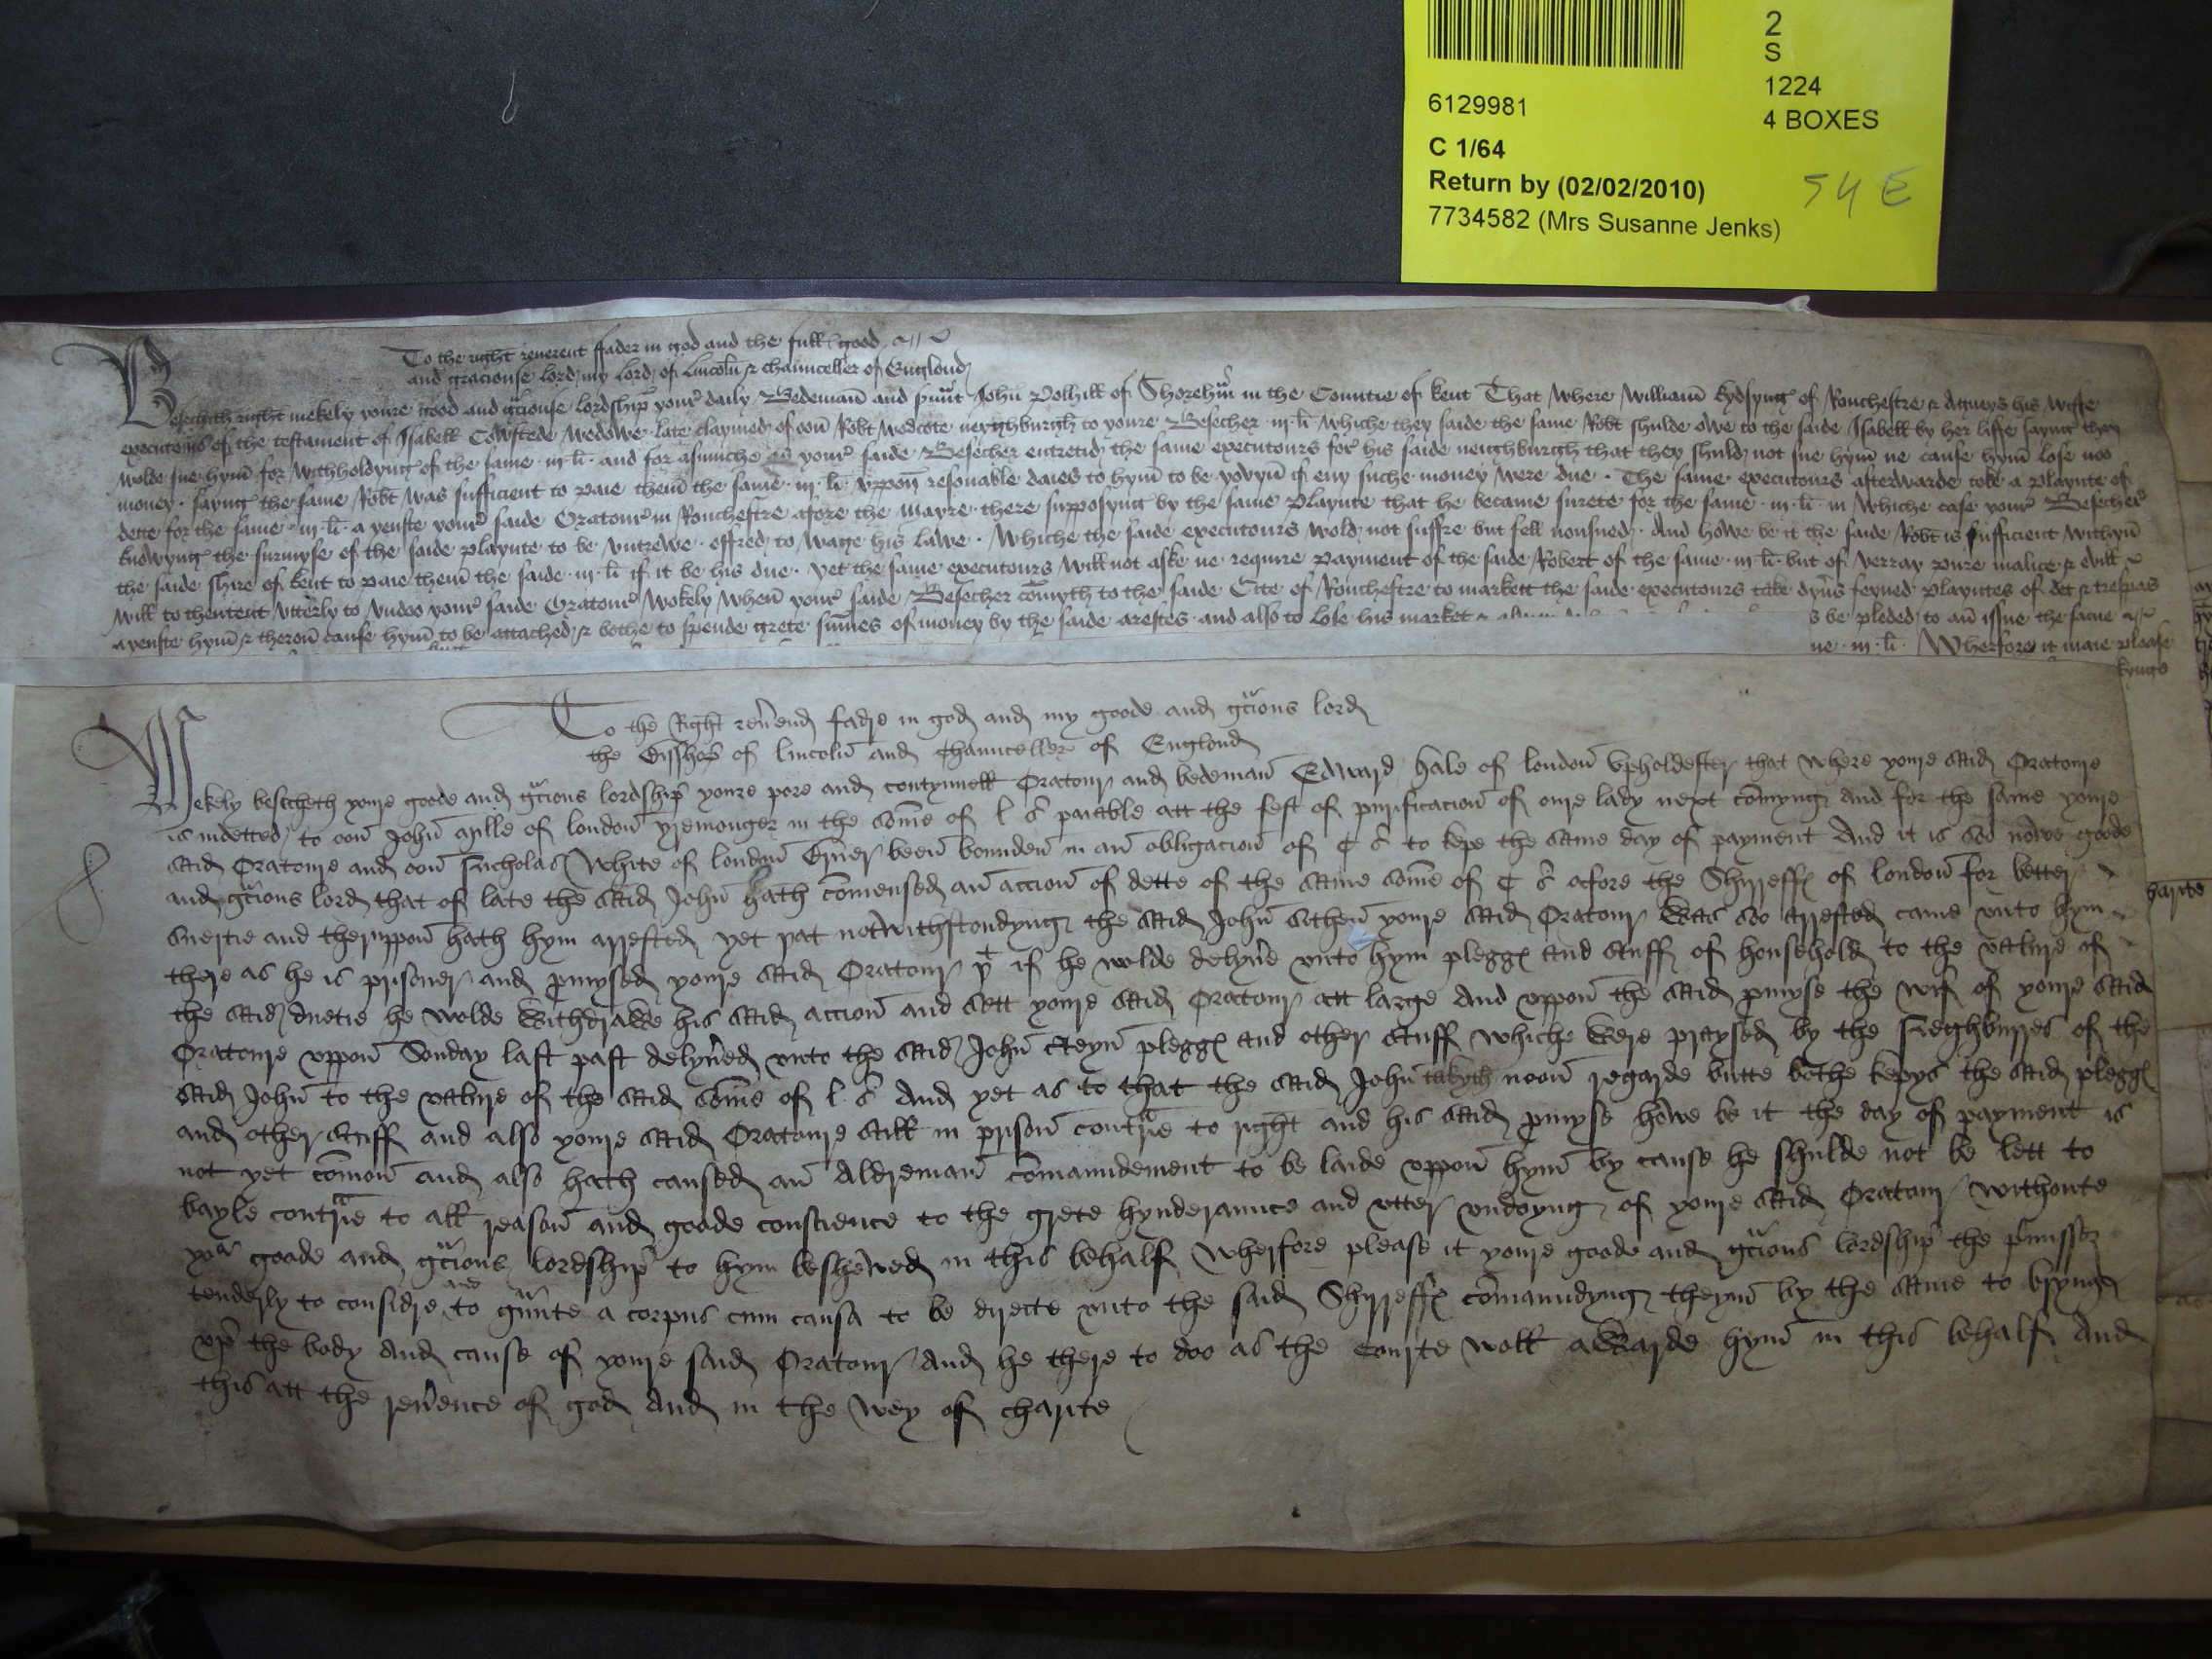 2
S
1224
4 BOXES
6129981
C 1/64
Return by (02/02/2010)
7734582 (Mrs Susanne Jenks)
54 E
To the right reuerent ffader in god and the full good
and graciouse lord my lord of Lincoln & chaunceller of Englond
Besechith right mekely youre good and gciouse lordship your daily Bedeman and suut John Polhill of Shorehm in the Countie of Kent That where William kydsyng of Rouchestre & Agneys his Wiffe
executours of the testament of Isabell Cowstede Wedowe late claymed of oon Robt Wodcote neyghburgh to youre Besecher iij li whiche they saide the same Robt shulde owe to the saide Isabell by her liffe sayng they
wolde sue hym for withholdyng of the same iij li and for asmuche as your saide Besecher entretid the same executours for his saide neighburgh that they shuld not sue hym ne cause hym lose noo
money sayng the same Robt was sufficient to paie them the same iij li uppon resonable daies to hym to be yovyn if eny suche money were due The same executours afterwarde toke a playnte of
dette for the same iij li a yenste your saide Oratour in Rouchestre afore the mayre there supposyng by the same playnte that he became surete for the same iij li in whiche case your Besecher
knowyng the surmyse of the saide playnte to be untrewe offred to wage his lawe Whiche the saide executours wold not suffre but fell nonsued And howe be it the saide Robt is sufficient withyn
the saide shire of Kent to paie them the saide iij li if it be his due yet the same executours will not aske ne require payment of the saide Robert of the same iij li but of verray pure malice & evill
will to thentent utterly to undoo your saide Oratour Wokely When your saide Besecher comyth to the saide Cite of Rouchestre to markett the saide executours take dyus feyned playntes of det & trespas
a yenste hym & theron cause hym to be attached & bothe to spende grete sumes of money by the saide arestes and also to lose his market
s be pleded to an issue the same
ne iij li Wherfore it maie please
kynge
To the Right reuend fadre in god and my goode and gcious lord
the Bisshop of lincoln and Chaunceller of Englond
Mekely besecheth youre goode and gcious lordship youre pore and contynuell Oratour and bedeman Edward hale of london Upholdester that where youre said Oratoure
is indetted to oon John aylle of london yremonger in the some of l s paiable att the fest of purificacion of oure lady next comyng and for the same youre
said Oratoure and oon Nicholas White of london been bounden in an obligacion of C s to kepe the same day of payment And it is soo nowe goode
and gcious lord that of late the said John hath comensed an accion of dette of the same some of C s afore the Shyreffes of london for better
suertie and theruppon hath hym arrested yet pat notwithstondyng the said John sithen youre said Oratour was soo arrested came unto hym
there as he is prisoner and pmysed youre said Oratour pt if he wolde delyue unto hym plegges and stuff of household to the valure of
the said duetie he wolde withdrawe his said accion and sett youre said Oratour att large And uppon the said pmyse the wif of youre said
Oratoure uppon Sonday last past delyued unto the said John cteyn plegges and other stuff whiche were praysed by the Neghburres of the
said John to the valure of the said some of l s And yet as to that the said John takyth noon regarde butte bothe kepys the said plegges
and other stuff and also youre said Oratoure still in prison contrie to right and his said pmyse howe be it the day of payment is
not yet comon and also hath caused an Aldreman comaundement to be laide uppon hym by cause he shulde not be lett to
bayle contrie to all reason and goode conscience to the grete hynderaunce and utter undoyng of youre said Oratour withoute
your goode and gcious lordship to hym beshewed in this behalf Wherfore please it youre goode and gcious lordship the pmisses
tenderly to considre and to gunte a corpus cum causa to be directe unto the said Shyreffes comaundyng theym by the same to bryng
up the body and cause of youre said Oratour And he there to doo as the Courte woll awarde hym in this behalf And
this att the reuence of god And in the wey of charite
harite